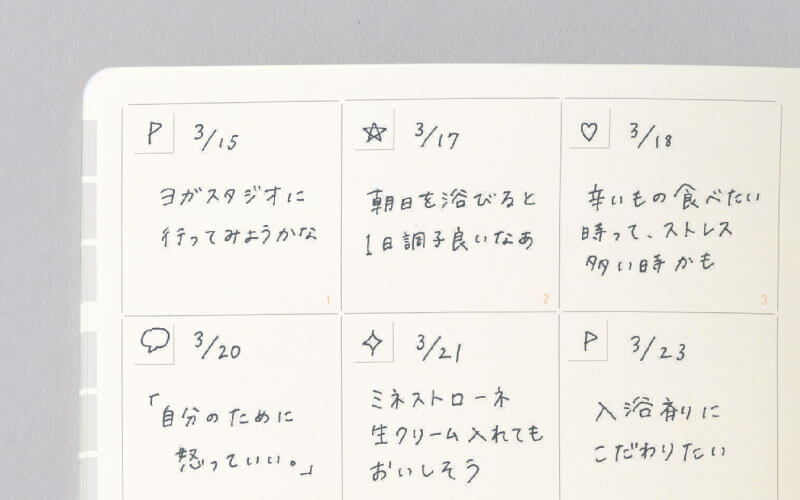 P 3/15
ヨガスタジオに
行ってみようかな
1
3/17
朝日を浴びると
1日調子良いなあ
2
3/18
辛いもの食べたい
時って、ストレス
多い時かも
3
3/20
「自分のために
怒っていい。」
3/21
ミネストローネ
生クリーム入れても
おいしそう
P 3/23
入浴剤に
こだわりたい